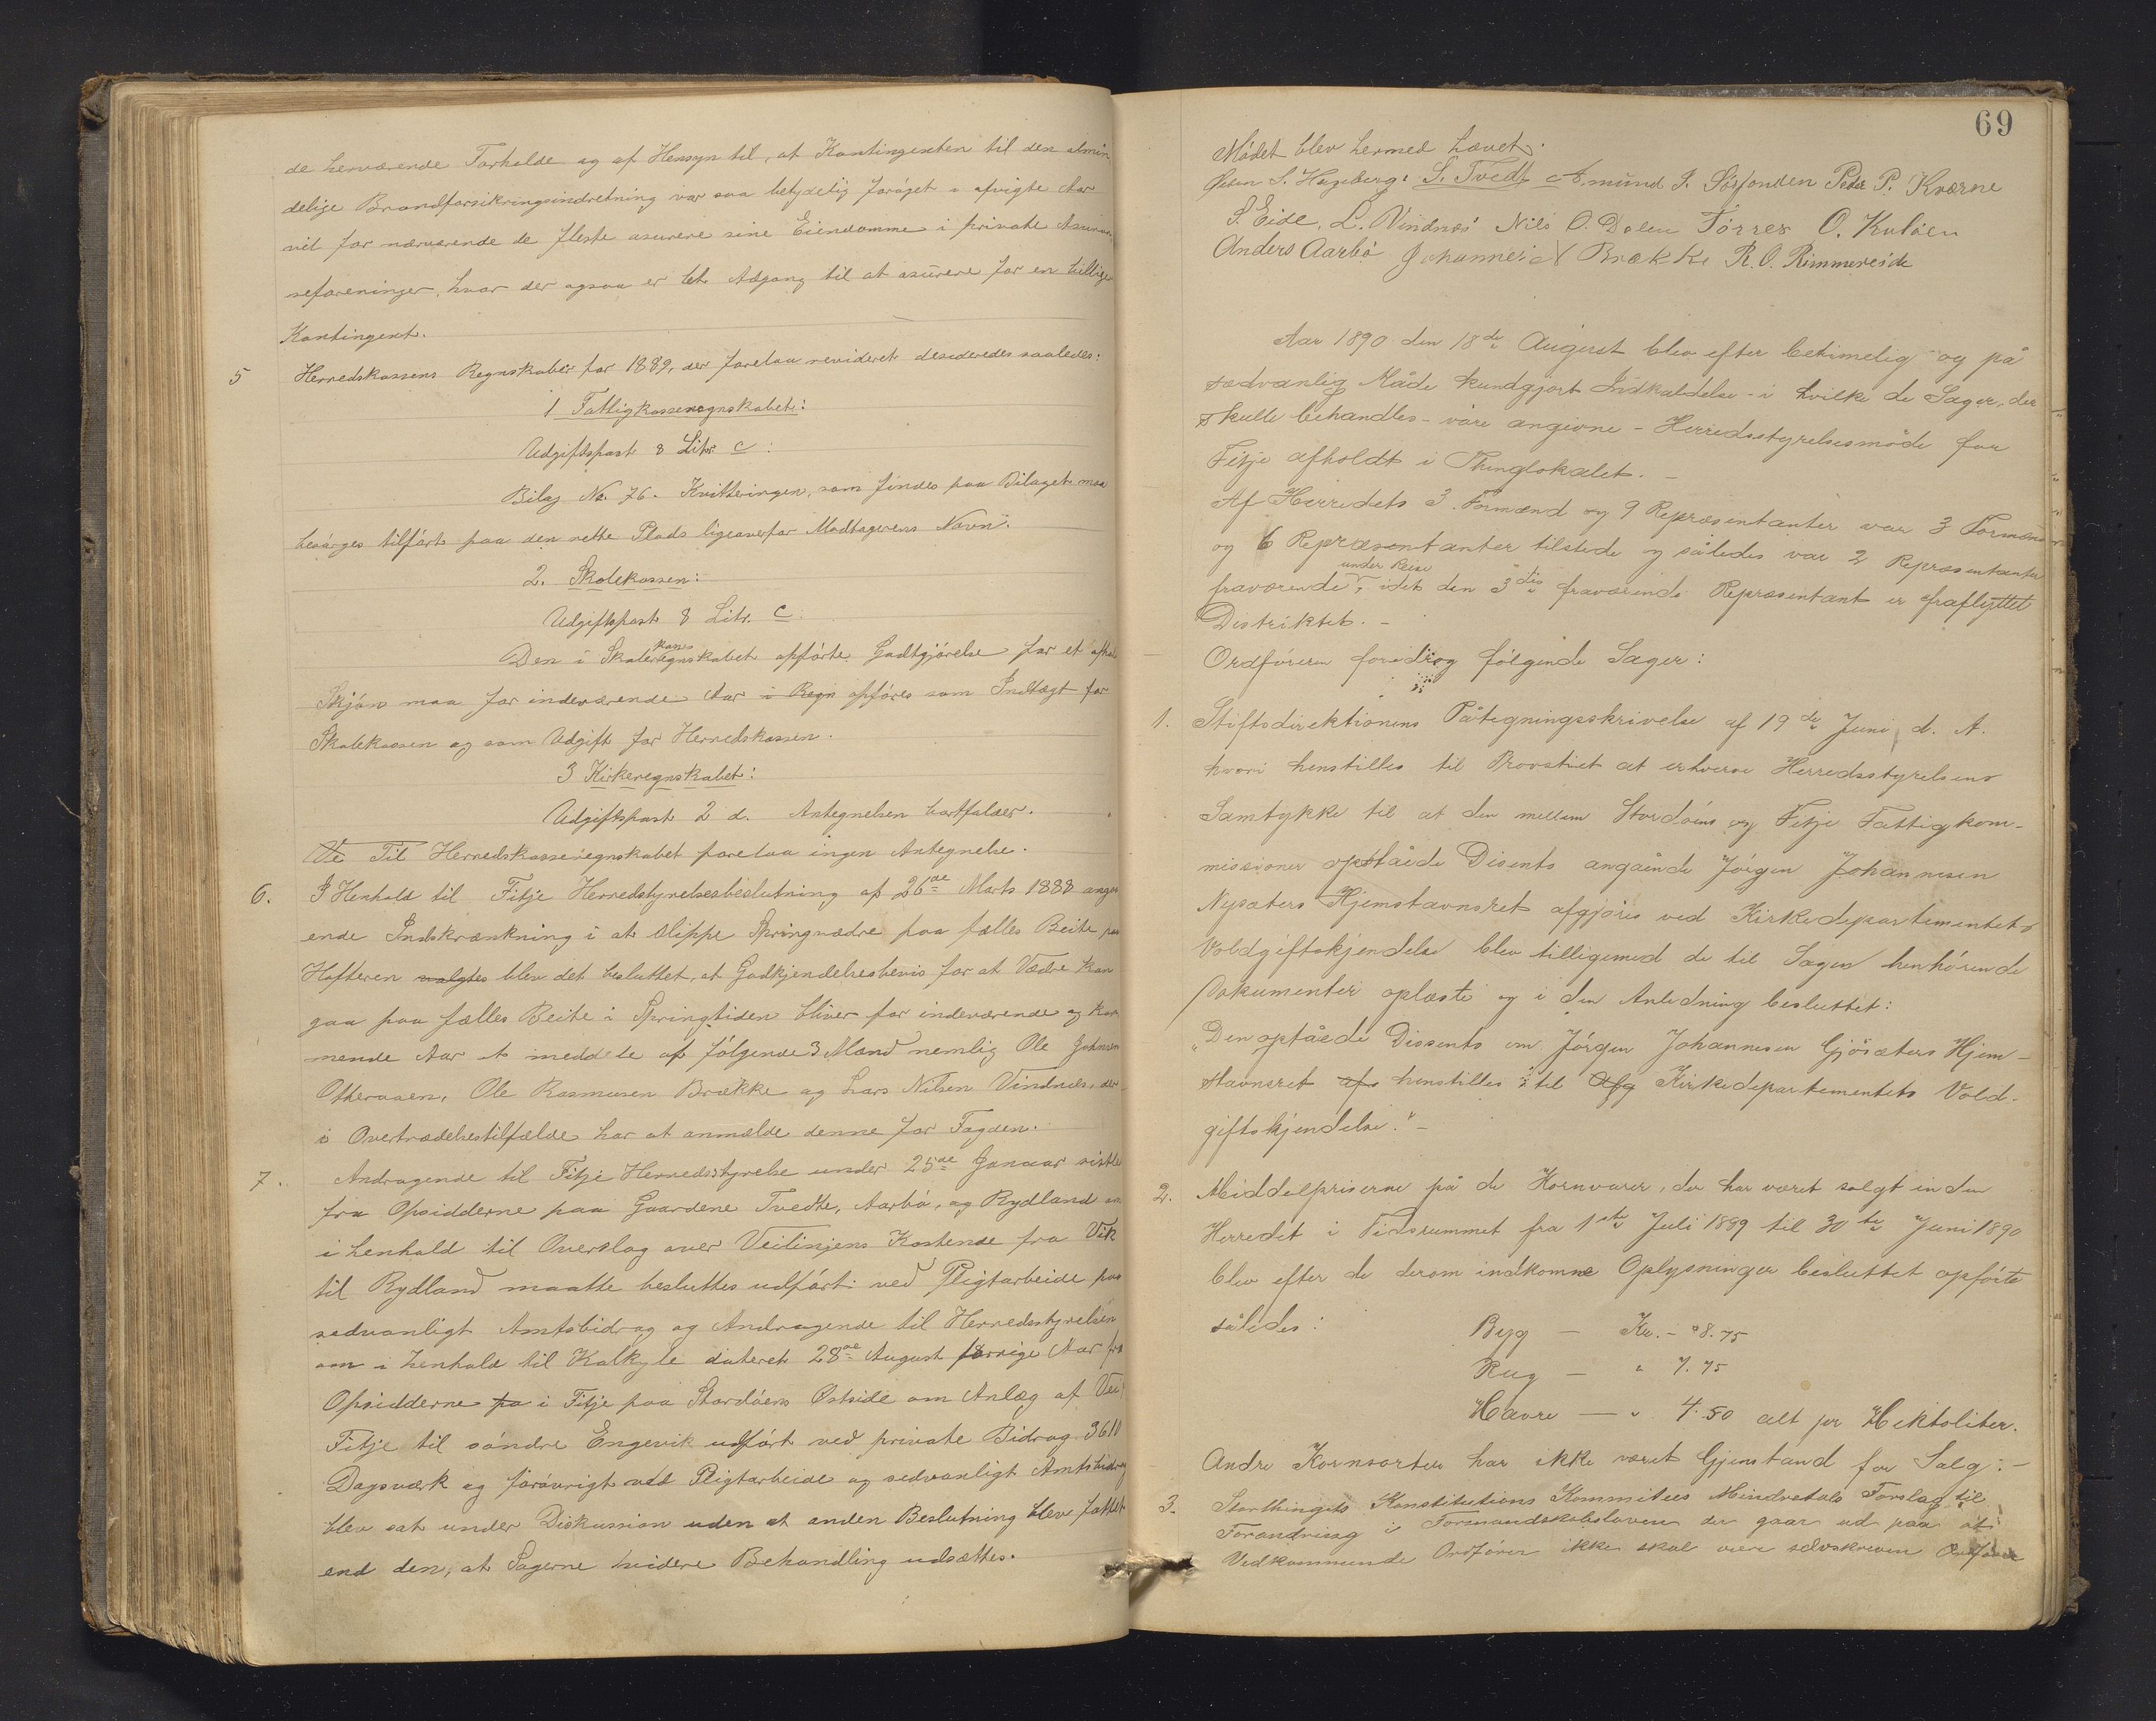 de herværende Forholde og af Hensyn til, at Kontingenten til den almin-
delige Brandforsikringsindretning var saa betydelig forøget i afvigte Aar
vil for nærværende de fleste asurere sine Eiendomme i private Asuran-
seforeninger, hvor der ogsaa er let Adgang til at asurere for en billiger
Kontingent.
5 Herredskassens Regnskaber for 1889, der forelaa revideret desideredes saaledes:
1 Fattigkasseregnskabet:
Udgiftspost 8 Litr. c:
Bilag No. 76. Kvitteringen, som findes paa Bilaget maa
besørges tilført paa den rette Plads ligeoverfor Modtagerens Navn.
2. Skolekassen:
Udgiftspost 8 Litr. c.
kasse
Den i Skoleregnskabet opførte Godtgjørelse for et afholdt
Skjøn maa for indeværende Aar i Regn opføres som Indtægt for
Skolekassen og som Udgift for Herredskassen.
3 Kirkeregnskabet:
Udgiftspost 2 d. Antegnelsen bortfalder.
Ve Til Herredskasseregnskabet forelaa ingen Antegnelse.
6. I Henhold til Fitje Herredstyrelsesbeslutning af 26de Marts 1888 angaa
ende Indskrænkning i at slippe Springvædre paa fælles Beite paa
Hofteren valgtes blev det besluttet, at Godkjendelsesbevis for at Vædre kan
gaa paa fælles Beite i Springtiden bliver for indeværende og kom-
mende Aar at meddele af følgende 3 Mænd nemlig Ole Johnsen
Otheraaen, Ole Rasmusen Brække og Lars Nilsen Vindnes, der
i Overtrædelsestilfælde har at anmelde denne for Fogden.
7. Andragende til Fitje Herredsstyrelse under 25de Januar sistl.
fra Opsidderne paa Gaardene Tvedte, Aarbø, og Rydland om
i henhold til Overslag over Veilinjens Kostende fra Vik
til Rydland maatte besluttes udført ved Pligtarbeide paa
sedvanligt Amtsbidrag og Andragende til Herredsstyrelsen
om i henhold til Kalkyle dateret 28de August forrige Aar fra
Opsidderne pa i Fitje paa Stordøens Østside om Anlæg af Vei
Fitje til søndre Engevik udført ved private Bidrag 3610
Dagsværk og forøvrigt ved Pligtarbeide og sedvanligt Amtsbidrag
blev sat under Diskussion uden at anden Beslutning blev fattet
end den, at Sagerne videre Behandling udsættes.
69
Mødet blev hermed hævet.
S. Hageberg. S. Tvedt Amund J. Sørfonden Peder P. Kværne
S. Eide, L. Vindnes Nils O. Dalen Tørres O. Kuløen
Anders Aarbø Johannes Brække R. O. Rimmereide
Aar 1890 den 18de August blev efter betimelig og på
sædvanlig Måde kundgjort Indkaldelse - i hvilke de Sager, der
skulle behandles - våre angivne - Herredsstyrelsesmøde for
Fitje afholdt i Thinglokalet. -
Af Herredets 3 Formænd og 9 Repræsentanter var 3 Formænd
og 6 Repræsentanter tilstede og således var 2 Repræsentanter
under Reise
fraværende, idet den 3die fraværende Repræsentant er fraflyttet
Distriktet. -
Ordføreren foredrog følgende Sager:
1. Stiftsdirektionens Påtegningsskrivelse af 19de Juni d. A.
hvori henstilles til Provstiet at erhverve Herredsstyrelsens
Samtykke til at den mellem Stordøens og Fitje Fattigkom-
missioner opståede Disents angående Jørgen Johannesen
Nysæters Hjemstavnsret afgjøres ved Kirkedepartementets
Voldgiftskjendelse blev tilligemed de til Sagen henhørende
Dokumenter oplæste og i den Anledning besluttet:
"Den opståede Dissents om Jørgen Johannesen Gjøsæters Hjem-
stavnsret afs henstilles til Afg Kirkedepartementets Vold-
giftskjendelse." -
2. Middelpriserne på de Kornvarer, der har været solgt inden
Herredet i Tidsrummet fra 1ste Juli 1889 til 30te Juni 1890
blev efter de derom indkomne Oplysninger besluttet opførte
således: Byg - Kr. - 8.75
Rug - " 7.75
Havre - " 4.50 alt pr Hektoliter.
Andre Kornsorter har ikke været Gjenstand for Salg. -
3. Storthingets Konstitutions Kommitees Mindretals Forslag til
Forandring i Formandskabsloven der gaar ud paa at
Vedkommende Ordfører ikke skal være selvskreven Ordfører